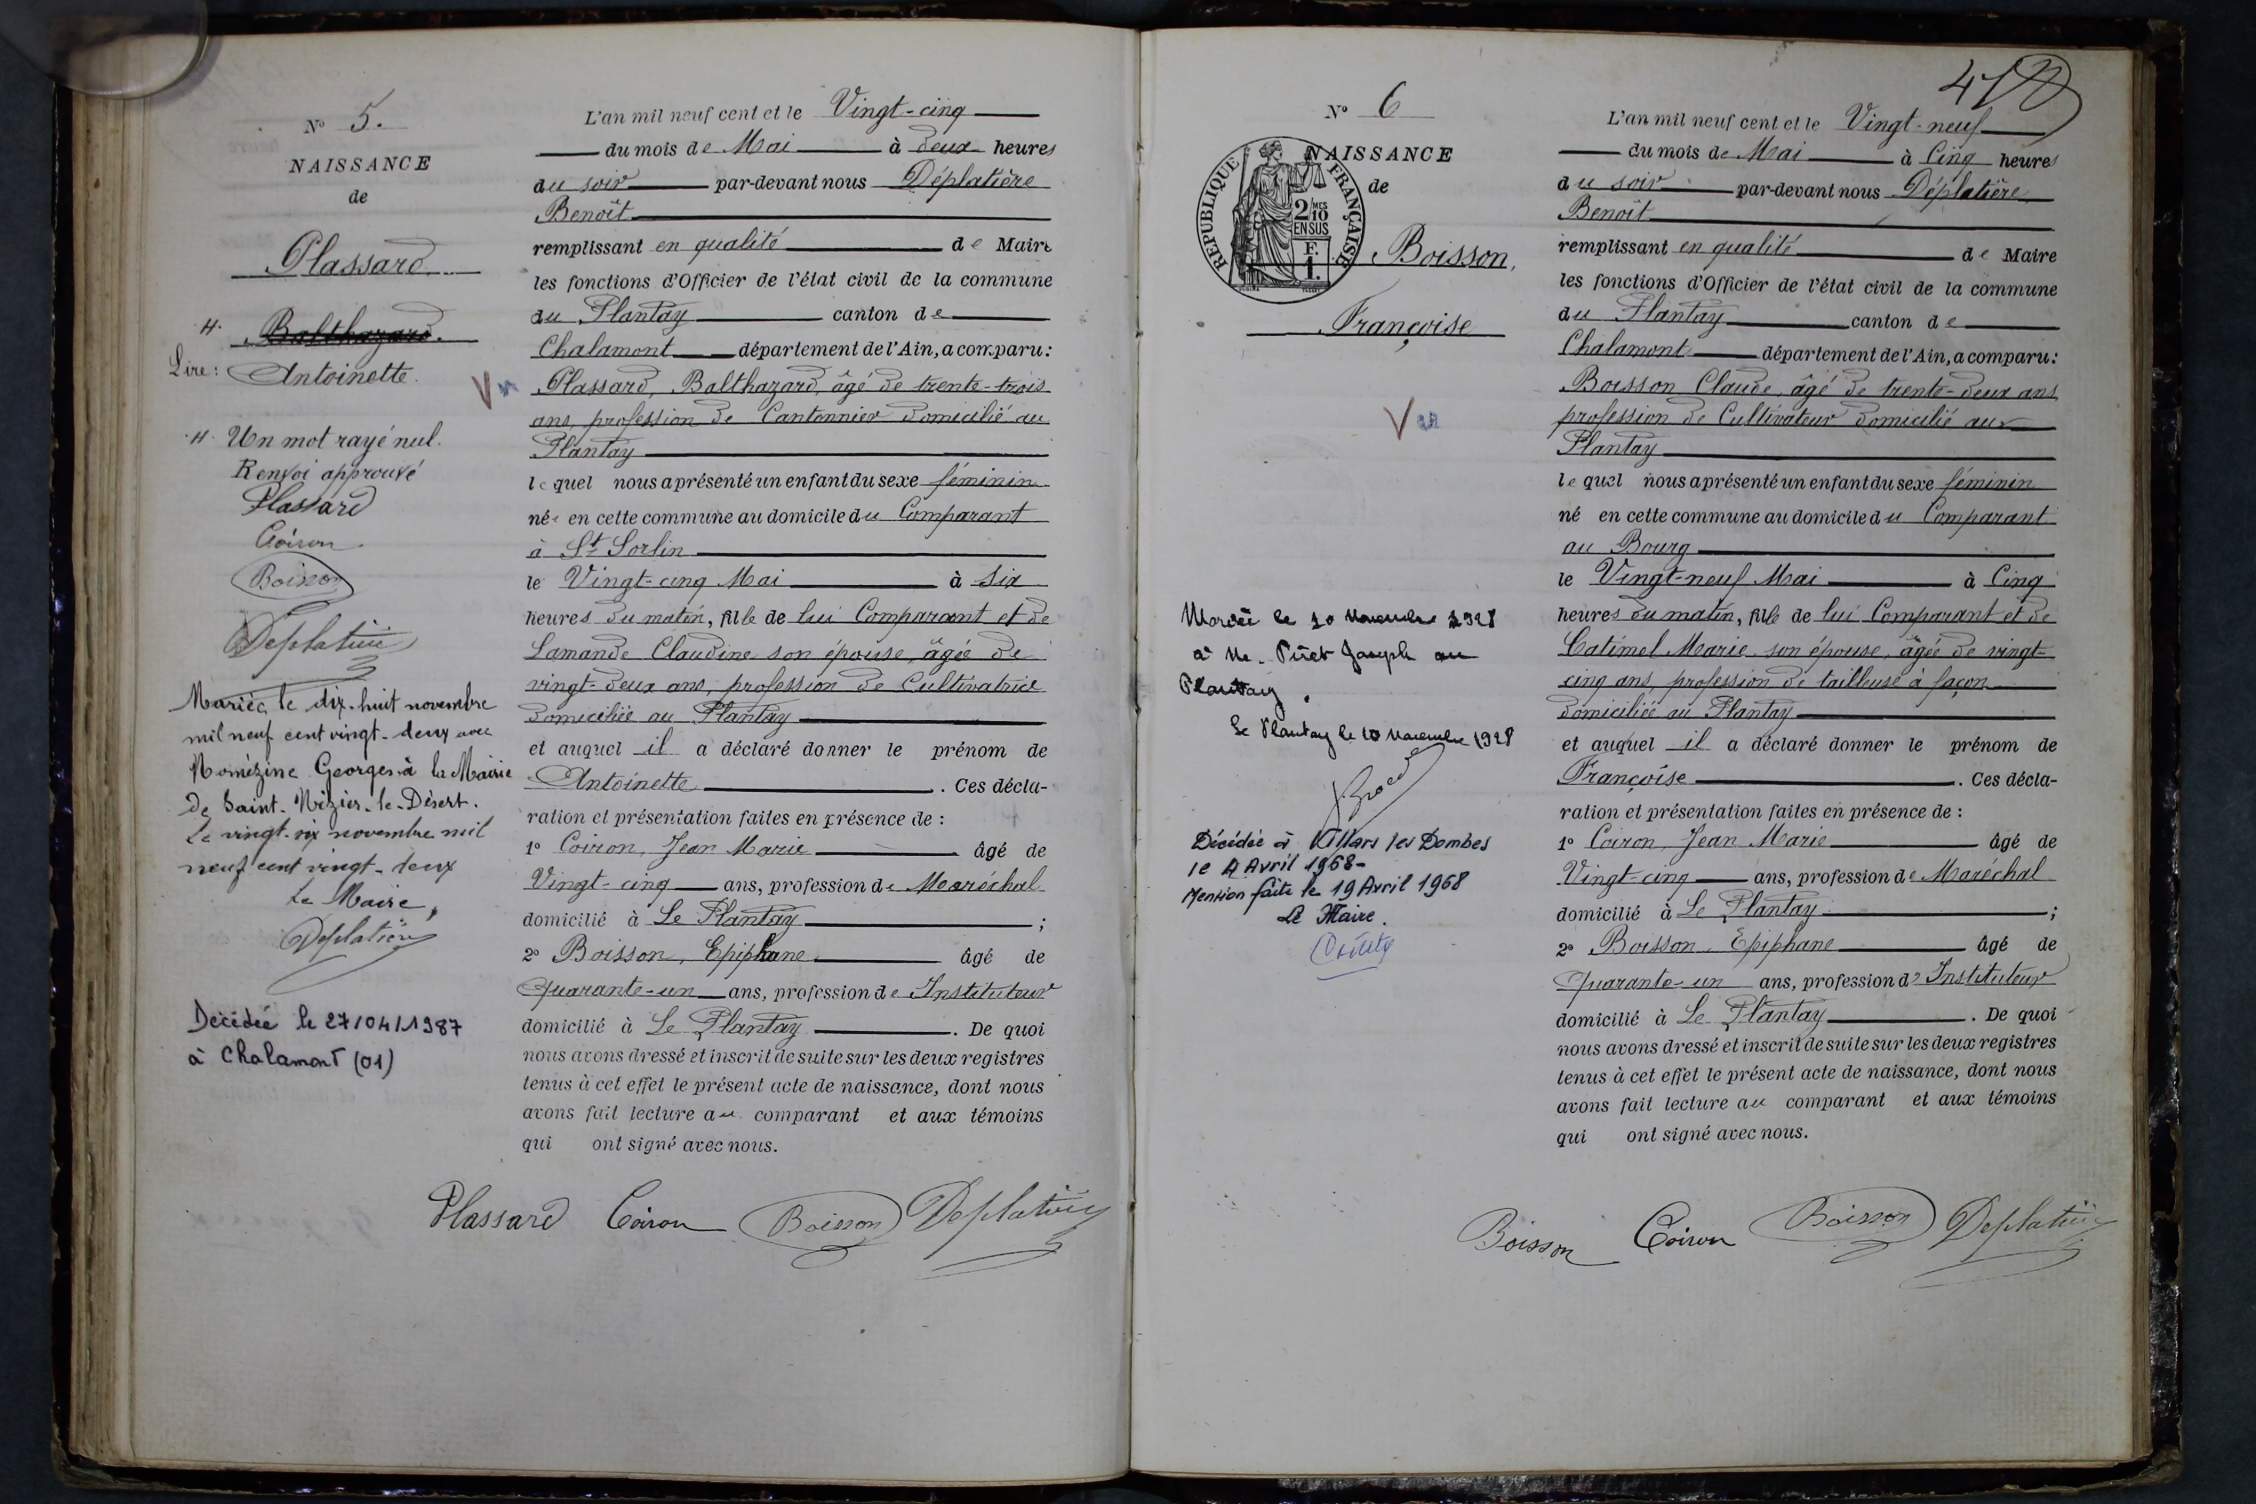 N° 5.
NAISSANCE
de
Plassard
Balthazard.
H.
Lire : Antoinette.
H. Un mot rayé nul.
Renvoi approuvé
Plassard
Coiron
Boisson
Deplatière
Mariée le dix-huit novembre
mil neuf cent vingt-deux avec
Georges à la Mairie
de Saint-Nizier-le-Désert.
Le vingt-six novembre mil
neuf cent vingt-deux
Le Maire,
Deplatière
Décédée le 27/04/1987
à Chalamont (01)
L'an mil neuf cent et le Vingt-cinq
du mois de Mai à deux heures
du soir par-devant nous Déplatière
Benoît
remplissant en qualité de Maire
les fonctions d'Officier de l'état civil de la commune
du Plantay canton de
Chalamont département de l'Ain, a comparu :
Vu
Plassard, Balthazard, âgé de trente-trois
ans, profession de Cantonnier domicilié au
Plantay
lequel nous a présenté un enfant du sexe féminin
née en cette commune au domicile du Comparant
à St Sorlin
le Vingt-cinq Mai à Six
heures du matin, fille de lui Comparant et de
Lamande Claudine son épouse, âgée de
vingt-deux ans, profession de Cultivatrice
domiciliée au Plantay
et auquel il a déclaré donner le prénom de
Antoinette. Ces décla-
ration et présentation faites en présence de :
1° Coiron, Jean Marie âgé de
Vingt-cinq ans, profession de Maréchal
domicilié à Le Plantay ;
2° Boisson, Epiphane âgé de
Quarante-un ans, profession de Instituteur
domicilié à Le Plantay. De quoi
nous avons dressé et inscrit de suite sur les deux registres
tenus à cet effet le présent acte de naissance, dont nous
avons fait lecture au comparant et aux témoins
qui ont signé avec nous.
Plassard Coiron Boisson Deplatière
N° 6
NAISSANCE
de
RÉPUBLIQUE FRANÇAISE
2/10 MES
EN SUS
F.
1.
Boisson,
Françoise
Vu
Mariée le 10 novembre 1928
à Mr. Joseph au
Plantay.
Le Plantay le 10 novembre 1928
Décédée à Villars les Dombes
le 4 Avril 1968-
Mention faite le 19 Avril 1968
Le Maire.
L'an mil neuf cent et le Vingt-neuf
du mois de Mai à Cinq heures
du soir par-devant nous Déplatière
Benoît
remplissant en qualité de Maire
les fonctions d'Officier de l'état civil de la commune
du Plantay canton de
Chalamont département de l'Ain, a comparu :
Boisson Claude, âgé de trente-deux ans
profession de Cultivateur domicilié au
Plantay
lequel nous a présenté un enfant du sexe féminin
né en cette commune au domicile du Comparant
au Bourg
le Vingt-neuf Mai à Cinq
heures du matin, fille de lui Comparant et de
Catimel Marie son épouse, âgée de vingt-
cinq ans, profession de tailleuse à façon
domiciliée au Plantay
et auquel il a déclaré donner le prénom de
Françoise. Ces décla-
ration et présentation faites en présence de :
1° Coiron, Jean Marie âgé de
Vingt-cinq ans, profession de Maréchal
domicilié à Le Plantay ;
2° Boisson, Epiphane âgé de
Quarante-un ans, profession de Instituteur
domicilié à Le Plantay. De quoi
nous avons dressé et inscrit de suite sur les deux registres
tenus à cet effet le présent acte de naissance, dont nous
avons fait lecture au comparant et aux témoins
qui ont signé avec nous.
Boisson Coiron Boisson Deplatière